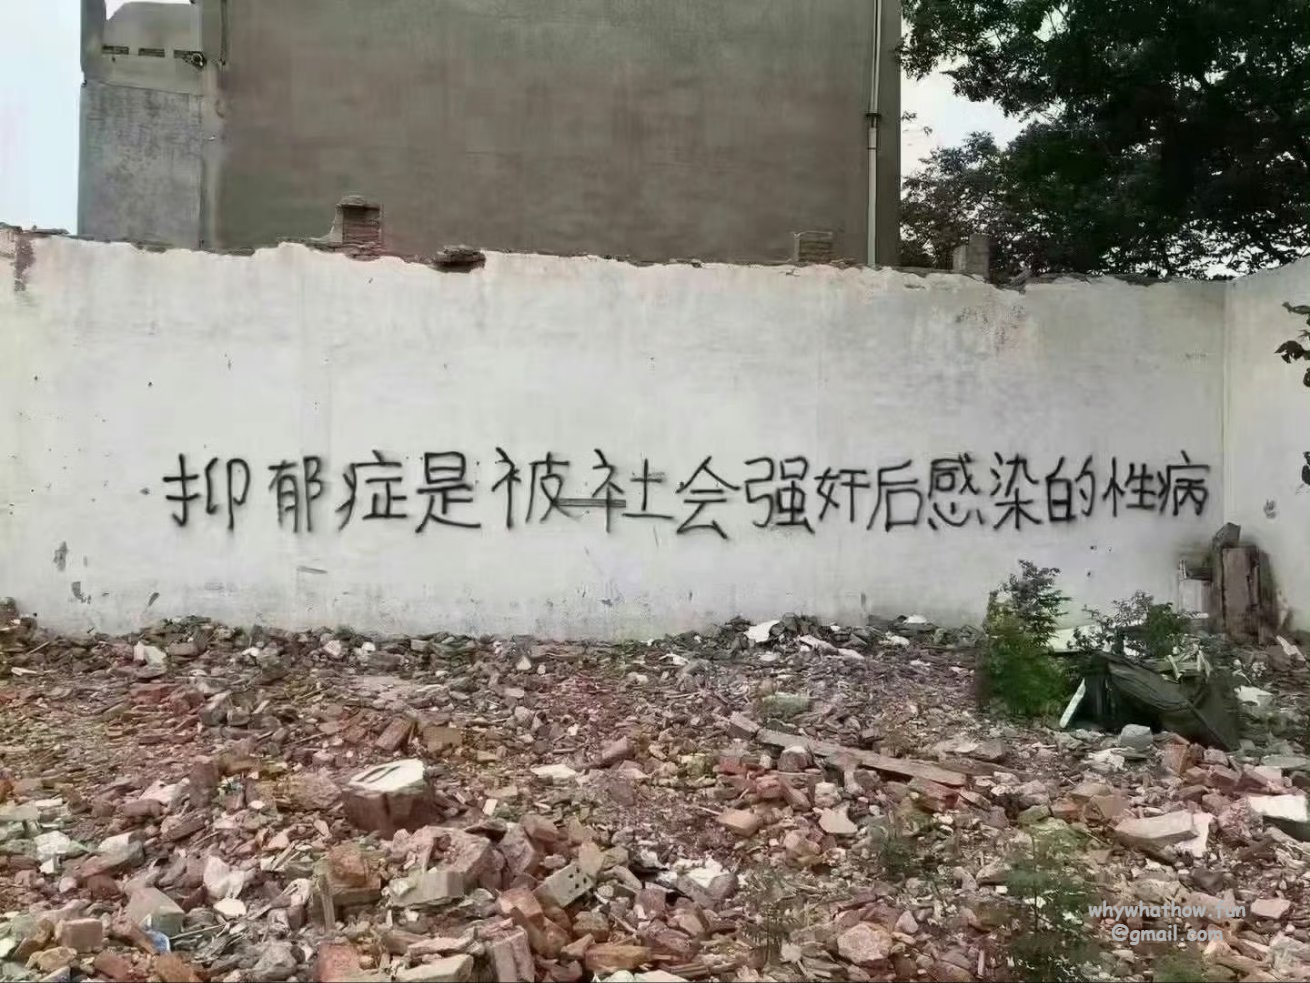 抑郁症是被社会强奸后感染的性病
whywhathow.fun
@gmail.com